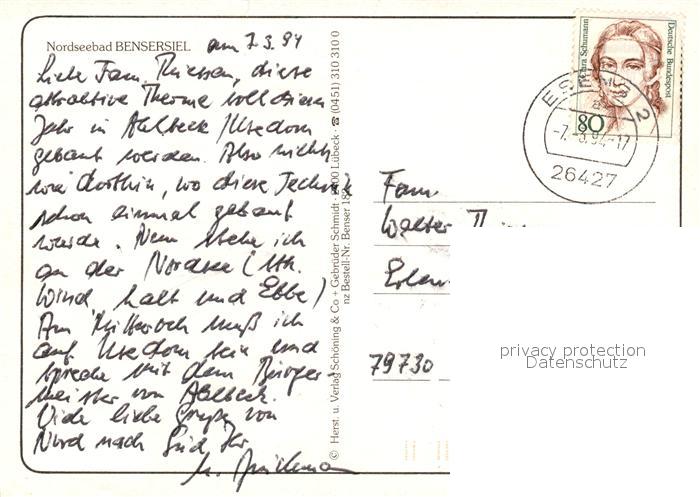 Nordseebad BENSERSIEL am 7.3.94
Liebe Fam. Thiessen, diese
attraktive Therme soll diesen
Jahr in Ahlbeck/Usedom
gebaut werden. Also nichts
wie dorthin, wo diese Technik
schon einmal gebaut
wurde. Nun stehe ich
an der Nordsee (
Wind, kalt und Ebbe)
Am Mittwoch muß ich
auf Usedom sein und
spreche mit dem Bürger
meister von Ahlbeck.
Viele liebe Grüße von
Nord nach Süd Ihr
© Herst. u. Verlag Schöning & Co + Gebrüder Schmidt · 2400 Lübeck · ☎ (0451) 310 310 0
nz Bestell-Nr. Benser 18
Clara Schumann
Deutsche Bundespost
80
ESENS 2
-7.-3.94-17
26427
Fam
Walter
79730
privacy protection
Datenschutz